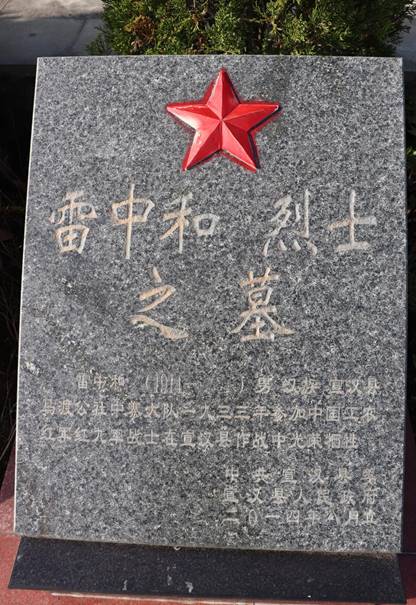 雷中和 烈士
之墓
雷中和 (1911- ) 男 汉族 宣汉县
马渡公社中寨大队一九三三年参加中国工农
红军红九军战士在宣汉县作战中光荣牺牲
中共宣汉县委
宣汉县人民政府
二0一四年八月立